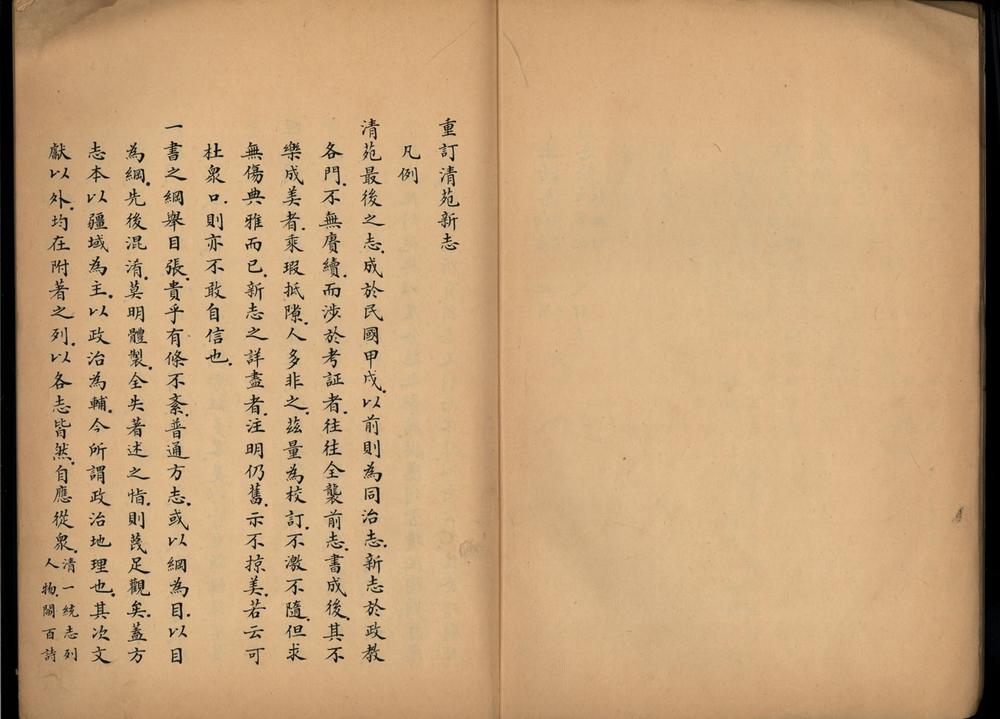 重訂清苑新志
凡例
清苑最後之志成於民國甲戌以前則為同治志新志於政教
各門不無賡續而涉於考証者往往全襲前志書成後其不
樂成美者乘瑕抵隙人多非之茲量為校訂不激不隨但求
無傷典雅而已新志之詳盡者注明仍舊示不掠美若云可
杜衆口則亦不敢自信也
一書之綱舉目張貴乎有條不紊普通方志或以綱為目以目
為綱先後混淆莫明體製全失著述之恉則蔑足觀矣蓋方
志本以疆域為主以政治為輔今所謂政治地理也其次文
獻以外均在附著之列以各志皆然自應從衆清一統志列
人物關百詩